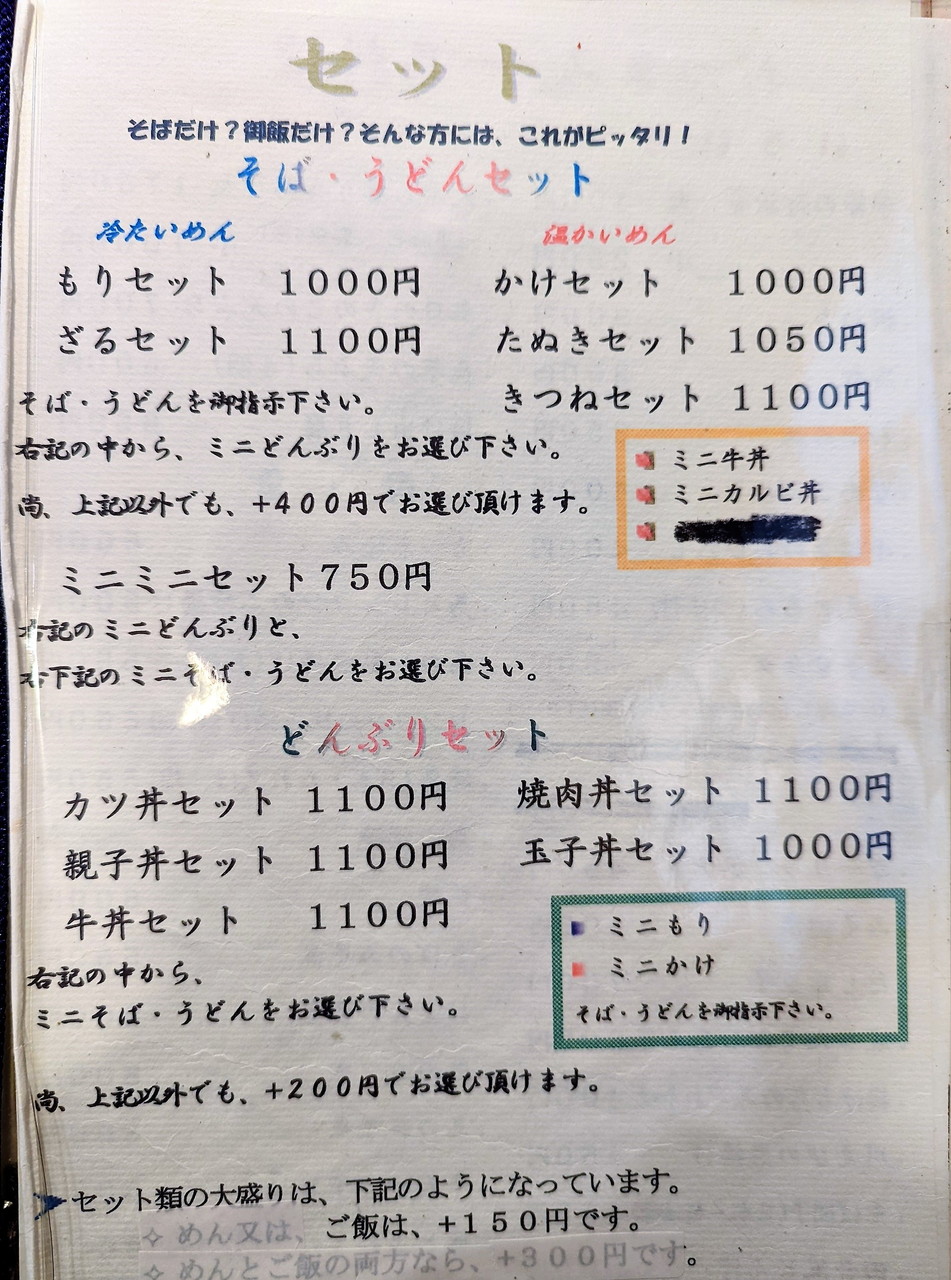 セット
そばだけ？御飯だけ？そんな方には、これがピッタリ！
そば・うどんセット
冷たいめん
もりセット 1000円
ざるセット 1100円
温かいめん
かけセット 1000円
たぬきセット 1050円
きつねセット 1100円
そば・うどんを御指示下さい。
右記の中から、ミニどんぶりをお選び下さい。
尚、上記以外でも、+400円でお選び頂けます。
ミニ牛丼
ミニカルビ丼
ミニミニセット750円
右記のミニどんぶりと、
右下記のミニそば・うどんをお選び下さい。
どんぶりセット
カツ丼セット 1100円
親子丼セット 1100円
牛丼セット 1100円
焼肉丼セット 1100円
玉子丼セット 1000円
右記の中から、
ミニそば・うどんをお選び下さい。
ミニもり
ミニかけ
そば・うどんを御指示下さい。
尚、上記以外でも、+200円でお選び頂けます。
セット類の大盛りは、下記のようになっています。
めん又は、ご飯は、+150円です。
めんとご飯の両方なら、+300円です。